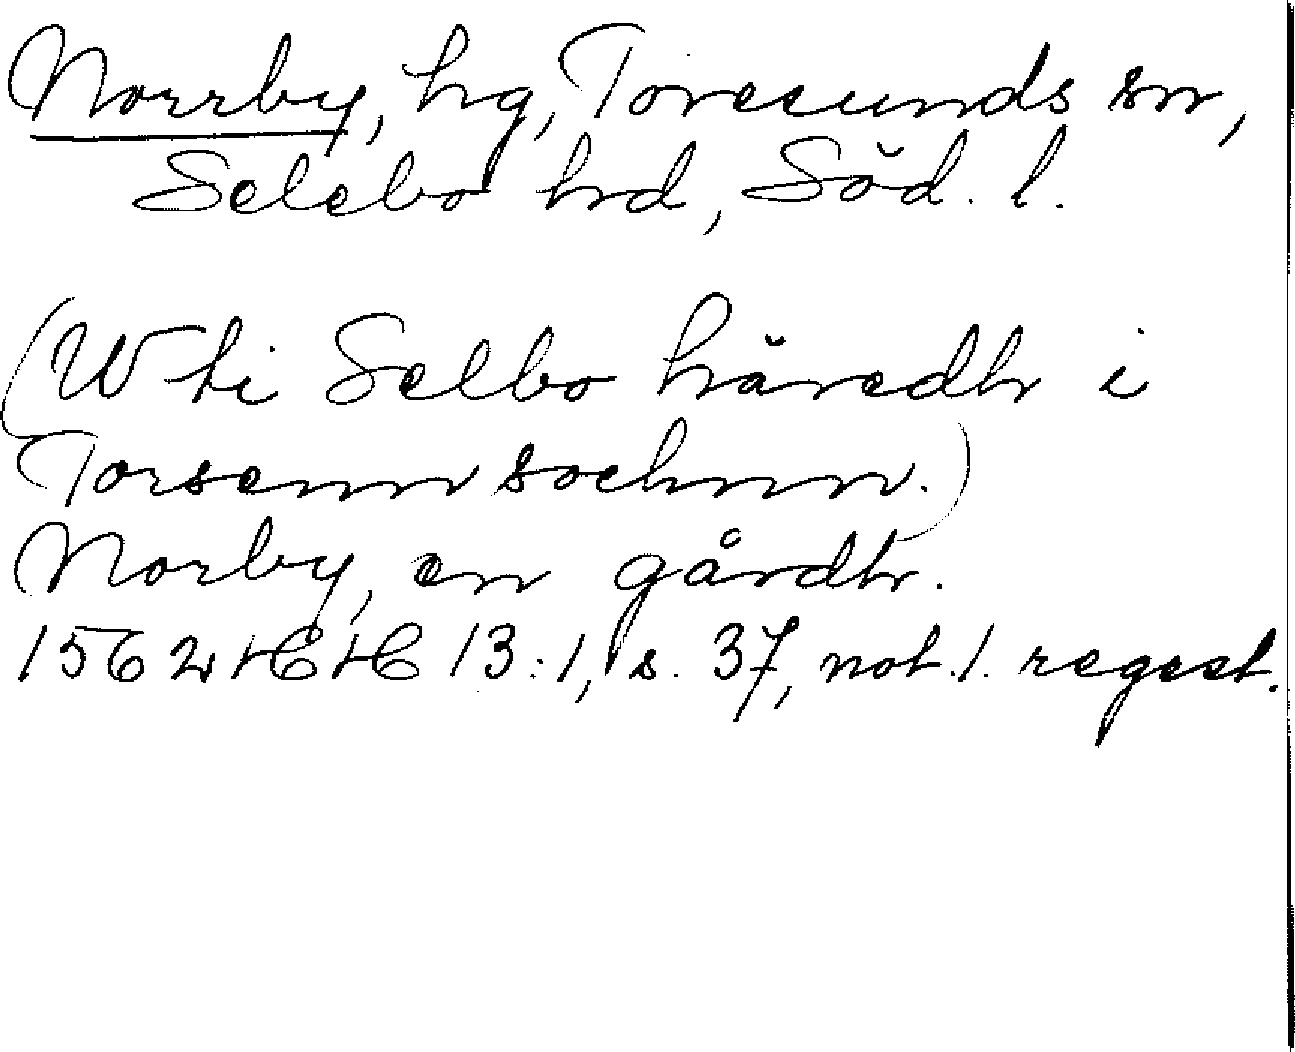 Norrby, hg, Toresunds sn,
Selebo hd, Söd. l.
(Wti Selbo häredh i
Torsenn sochnn.)
Norby, en gårdh.
1562 HH 13:1, s. 37, not. 1. regest.